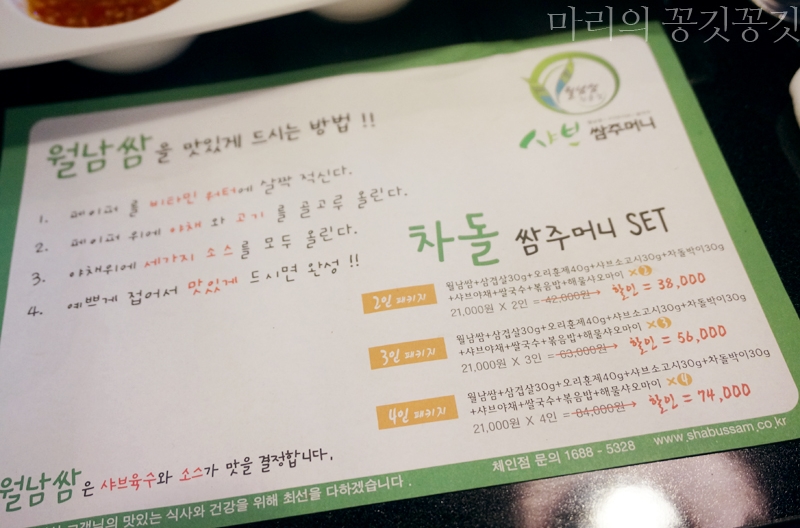 마리의 꽁깃꽁깃
월남쌈
샤브 쌈주머니
월남쌈을 맛있게 드시는 방법 !!
1. 페이퍼를 비타민 워터에 살짝 적신다.
2. 페이퍼 위에 야채 와 고기 를 골고루 올린다.
3. 야채위에 세가지 소스를 모두 올린다.
4. 예쁘게 접어서 맛있게 드시면 완성 !!
차돌 쌈주머니 SET
2인 패키지
월남쌈+삼겹살30g+오리훈제40g+샤브소고시30g+차돌박이30g
+샤브야채+쌀국수+볶음밥+해물샤오마이 ×2
21,000원 X 2인 = 42,000원→ 할인 = 38,000
3인 패키지
월남쌈+삼겹살30g+오리훈제40g+샤브소고시30g+차돌박이30g
+샤브야채+쌀국수+볶음밥+해물샤오마이 ×3
21,000원 X 3인 = 63,000원→ 할인 = 56,000
4인 패키지
월남쌈+삼겹살30g+오리훈제40g+샤브소고시30g+차돌박이30g
+샤브야채+쌀국수+볶음밥+해물샤오마이 ×4
21,000원 X 4인 = 84,000원→ 할인 = 74,000
월남쌈은 샤브육수와 소스가 맛을 결정합니다.
고객님의 맛있는 식사와 건강을 위해 최선을 다하겠습니다.
체인점 문의 1688 - 5328 www.shabussam.co.kr